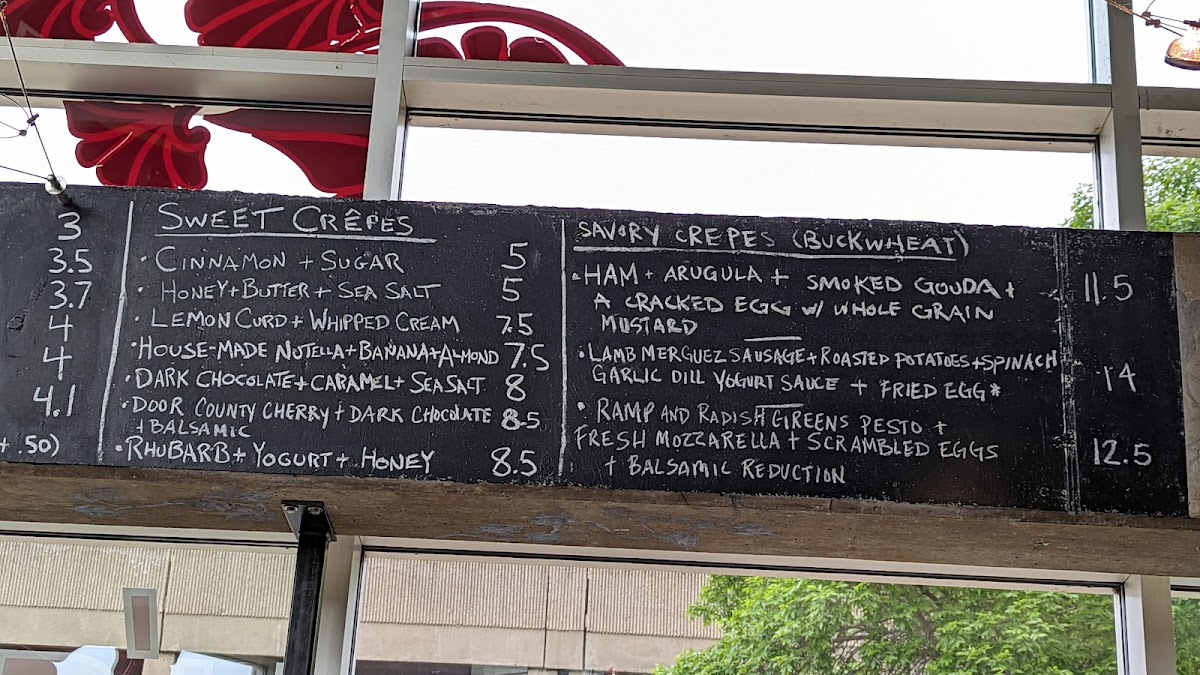 3
3.5
3.7
4
4
4.1
+ .50)
SWEET CRÊPES
• CINNAMON + SUGAR 5
• HONEY + BUTTER + SEA SALT 5
• LEMON CURD + WHIPPED CREAM 7.5
• HOUSE-MADE NUTELLA + BANANA + ALMOND 7.5
• DARK CHOCOLATE + CARAMEL + SEA SALT 8
• DOOR COUNTY CHERRY + DARK CHOCOLATE 8.5
+ BALSAMIC
• RHUBARB + YOGURT + HONEY 8.5
SAVORY CREPES (BUCKWHEAT)
• HAM + ARUGULA + SMOKED GOUDA + 11.5
A CRACKED EGG W/ WHOLE GRAIN
MUSTARD
• LAMB MERGUEZ SAUSAGE + ROASTED POTATOES + SPINACH
GARLIC DILL YOGURT SAUCE + FRIED EGG* 14
• RAMP AND RADISH GREENS PESTO +
FRESH MOZZARELLA + SCRAMBLED EGGS 12.5
+ BALSAMIC REDUCTION